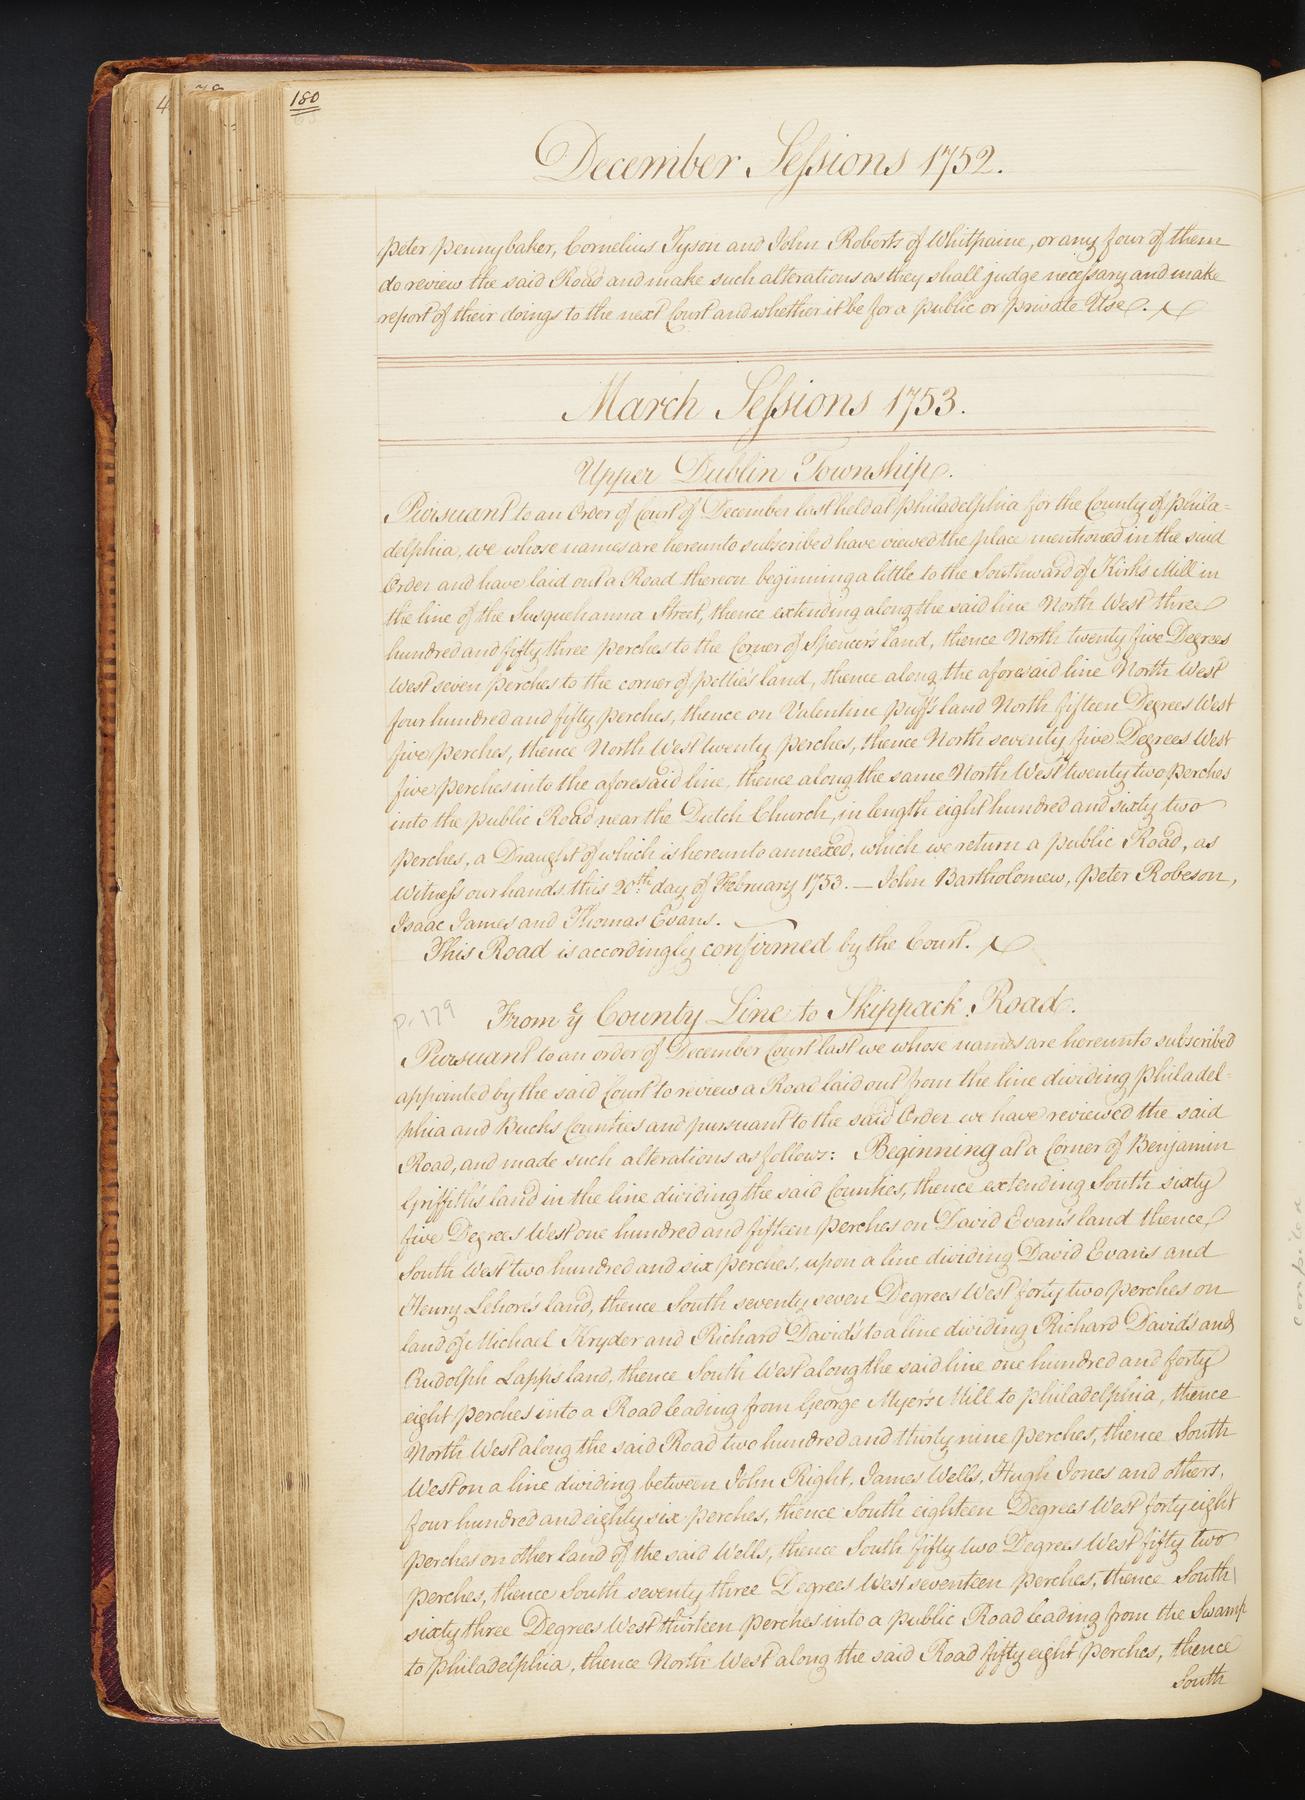 180
December Sessions 1752.
Peter Pennybaker, Cornelius Tyson and John Roberts of Whitpaine, or any four of them
do review the said Road and make such alterations as they shall judge necessary and make
report of their doings to the next Court and whether it be for a public or private Use.
March Sessions 1753.
Upper Dublin Township.
Pursuant to an Order of Court of December last held at Philadelphia for the County of Phila=
delphia, we whose names are hereunto subscribed have viewed the place mentioned in the said
Order and have laid out a Road thereon beginning a little to the Southward of Kirk's Mill in
the line of the Susquehanna Street, thence extending along the said line North West three
hundred and fifty three perches to the Corner of Spencer's land, thence North twenty five Degrees
West seven perches to the corner of Pettie's land, thence along the aforesaid line North West
four hundred and fifty perches, thence on Valentine Puff's land North fifteen Degrees West
five perches, thence North West twenty perches, thence North seventy five Degrees West
five perches into the aforesaid line, thence along the same North West twenty two perches
into the public Road near the Dutch Church, in length eight hundred and sixty two
perches, a Draught of which is hereunto annexed, which we return a public Road, as
Witness our hands this 20th day of February 1753. — John Bartholomew, Peter Robeson,
Isaac James and Thomas Evans.
This Road is accordingly confirmed by the Court.
p. 179
From ye County Line to Skippack Road.
Pursuant to an order of December Court last we whose names are hereunto subscribed
appointed by the said Court to review a Road laid out from the line dividing Philadel-
phia and Bucks Counties and pursuant to the said Order we have reviewed the said
Road, and made such alterations as follows: Beginning at a Corner of Benjamin
Griffith's land in the line dividing the said Counties, thence extending South sixty
five Degrees West one hundred and fifteen perches on David Evan's land thence
South West two hundred and six perches, upon a line dividing David Evans and
Henry Lehore's land, thence South seventy seven Degrees West forty two perches on
land of Michael Kryder and Richard David's to a line dividing Richard David's and
Rudolph Lapp's land, thence South West along the said line one hundred and forty
eight perches into a Road leading from George Myer's Mill to Philadelphia, thence
North West along the said Road two hundred and thirty nine perches, thence South
West on a line dividing between John Right, James Wells, Hugh Jones and others,
four hundred and eighty six perches, thence South eighteen Degrees West forty eight
perches on other land of the said Wells, thence South fifty two Degrees West fifty two
perches, thence South seventy three Degrees West seventeen perches, thence South
sixty three Degrees West thirteen perches into a public Road leading from the Swamp
to Philadelphia, thence North West along the said Road fifty eight perches, thence
South